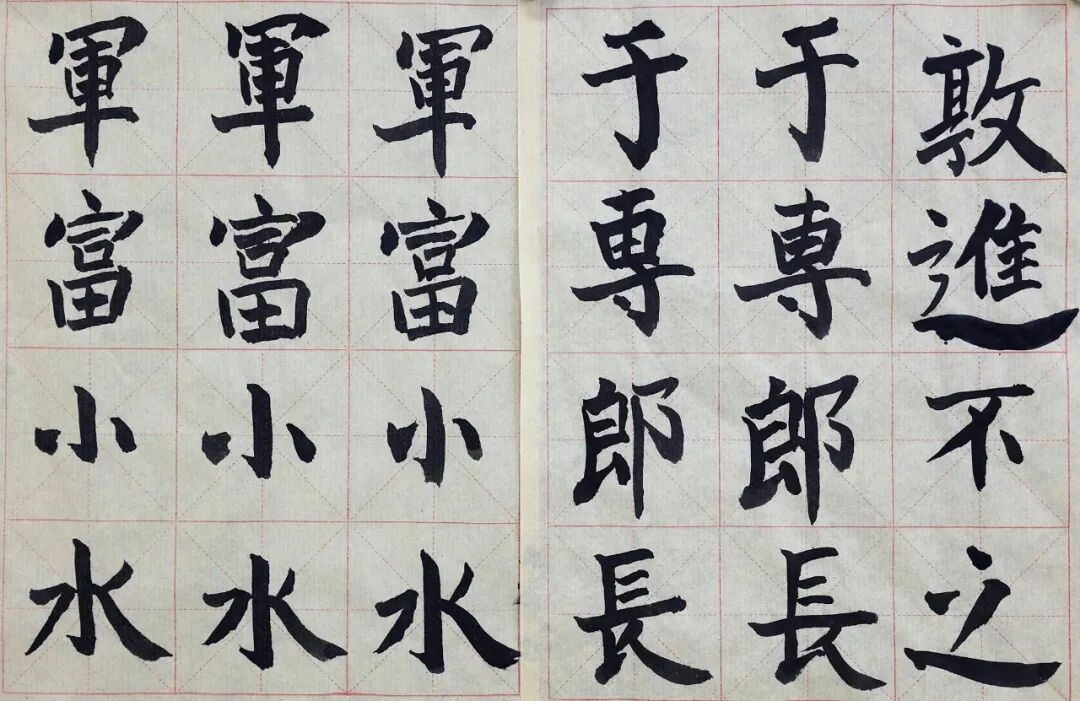 敦進不之
于専郎長
于専郎長
軍富小水
軍富小水
軍富小水